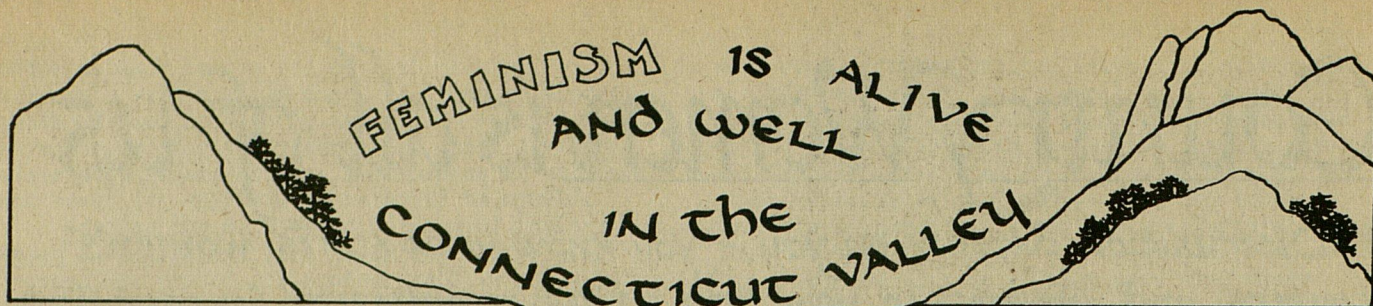 FEMINISM IS ALIVE
AND WELL
IN the
CONNECTICUT VALLEY